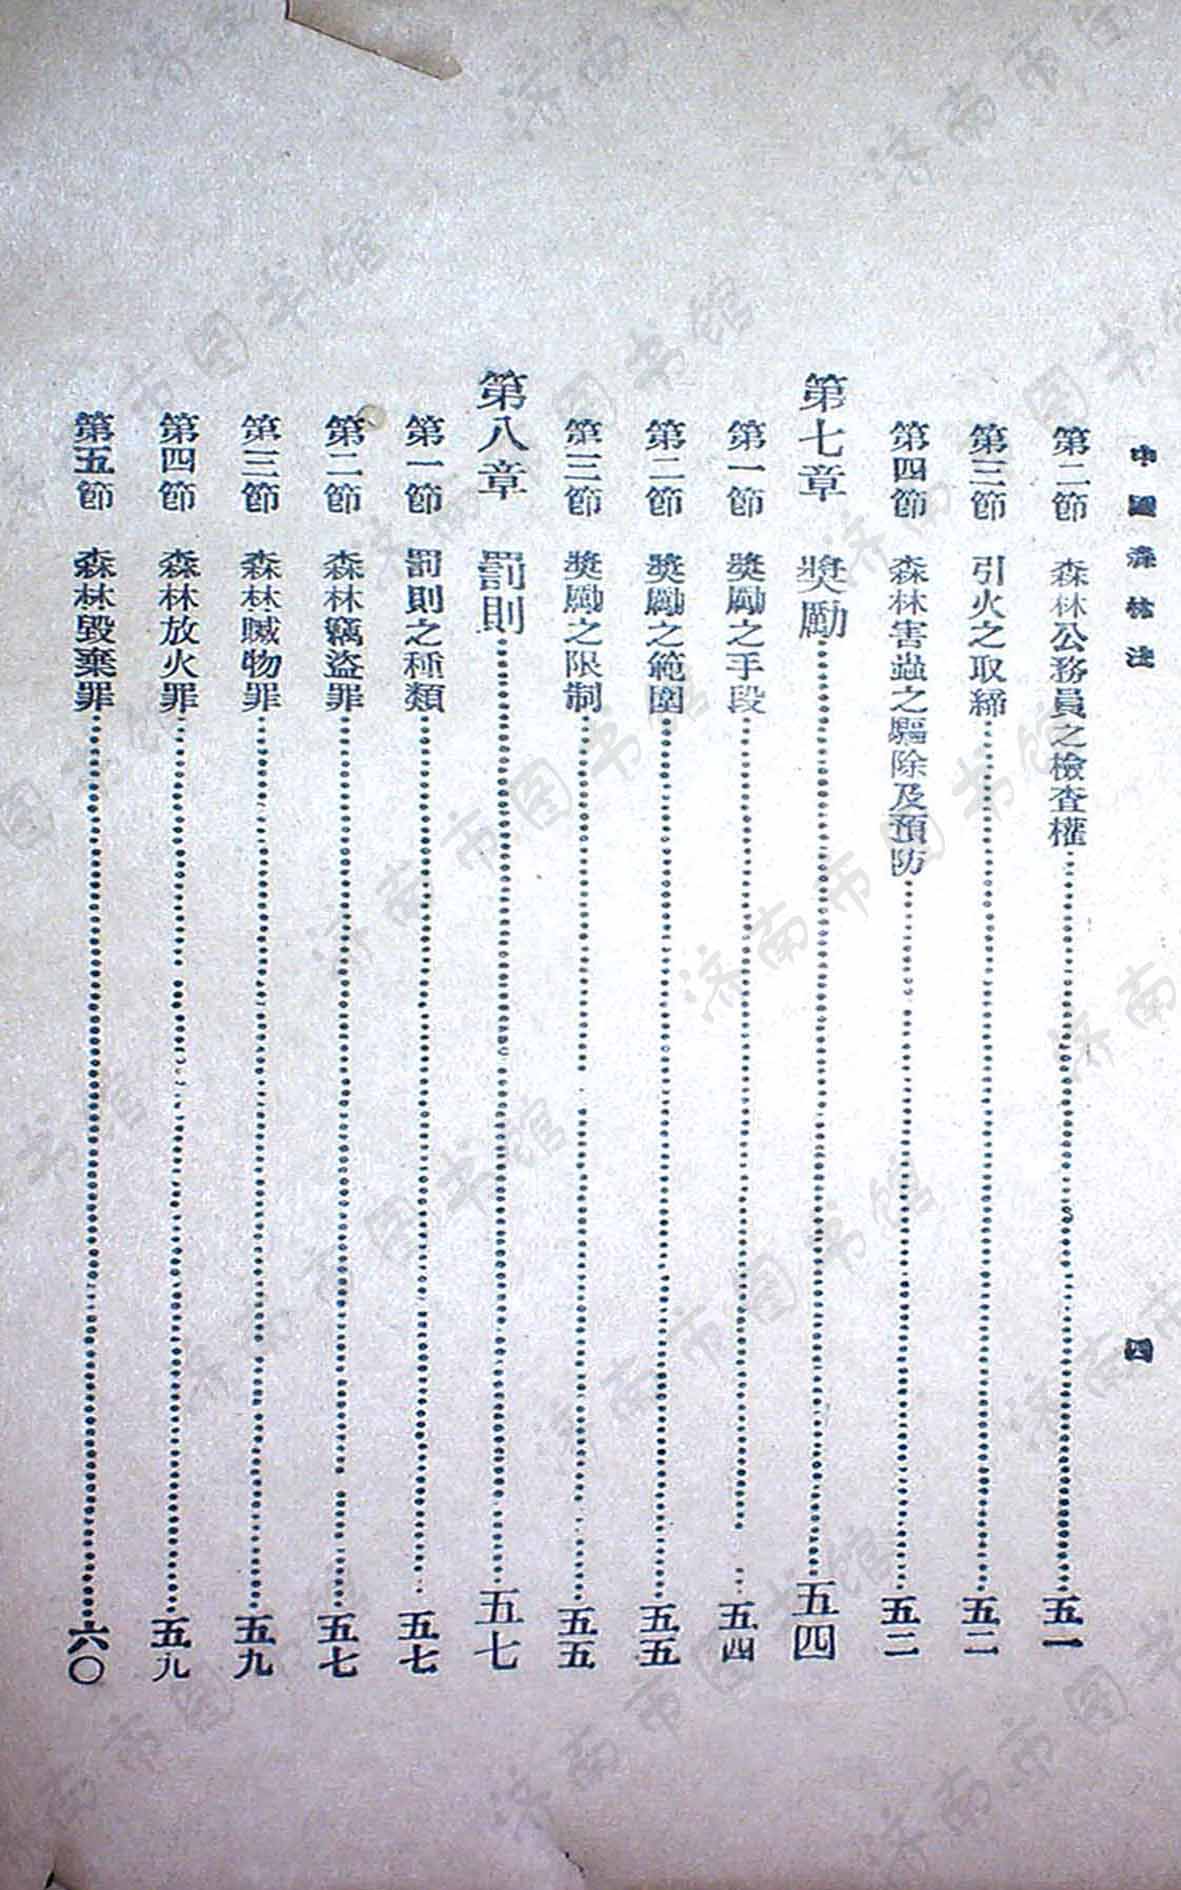 中國森林法
四
第二節 森林公務員之檢查權……五一
第三節 引火之取締……五二
第四節 森林害蟲之驅除及預防……五二
第七章 獎勵……五四
第一節 獎勵之手段……五四
第二節 獎勵之範圍……五五
第三節 獎勵之限制……五五
第八章 罰則……五七
第一節 罰則之種類……五七
第二節 森林竊盜罪……五七
第三節 森林贓物罪……五九
第四節 森林放火罪……五九
第五節 森林毀棄罪……六〇
济南市图书馆